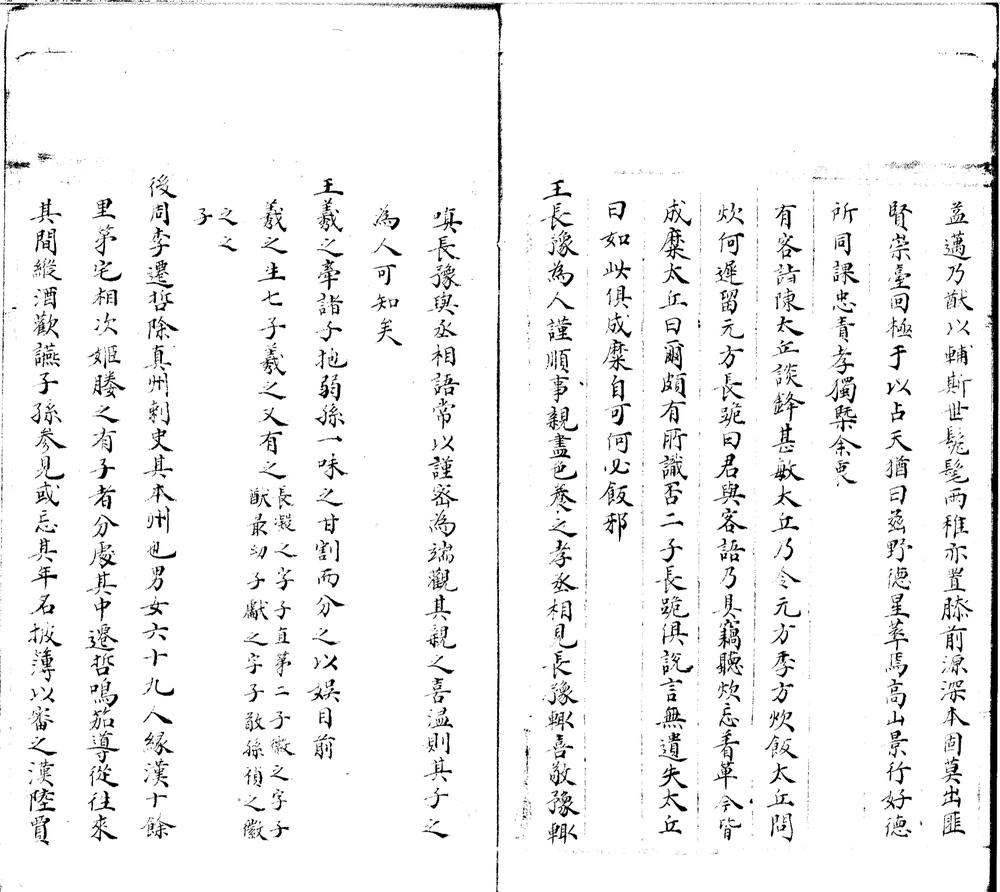 益邁乃猷以輔斯世髧髦兩稚亦置膝前源深本固莫出匪
賢崇臺回極于以占天猶曰玆野德星萃焉高山景行好德
所同課忠責孝獨槩余衷
有客詣陳太丘談鋒甚敏太丘乃令元方季方炊飯太丘問
炊何遲留元方長跪曰君與客語乃具竊聽炊忘著箄今皆
成糜太丘曰爾頗有所識否二子長跪俱說言無遺失太丘
曰如此俱成糜自可何必飯邪
王長豫為人謹順事親盡色養之孝丞相見長豫輒喜敬豫輒
嗔長豫與丞相語常以謹密為端觀其親之喜溫則其子之
為人可知矣
王羲之牽諸子抱弱孫一味之甘割而分之以娛目前
羲之生七子羲之又有之長凝之字子直第二子徽之字子
猷最幼子獻之字子敬孫楨之徽
之之
子
後周李遷哲除真州刺史其本州也男女六十九人緣漢十餘
里苐宅相次姬媵之有子者分處其中遷哲鳴笳導從往來
其間縱酒歡讌子孫參見或忘其年名披簿以審之漢陸賈